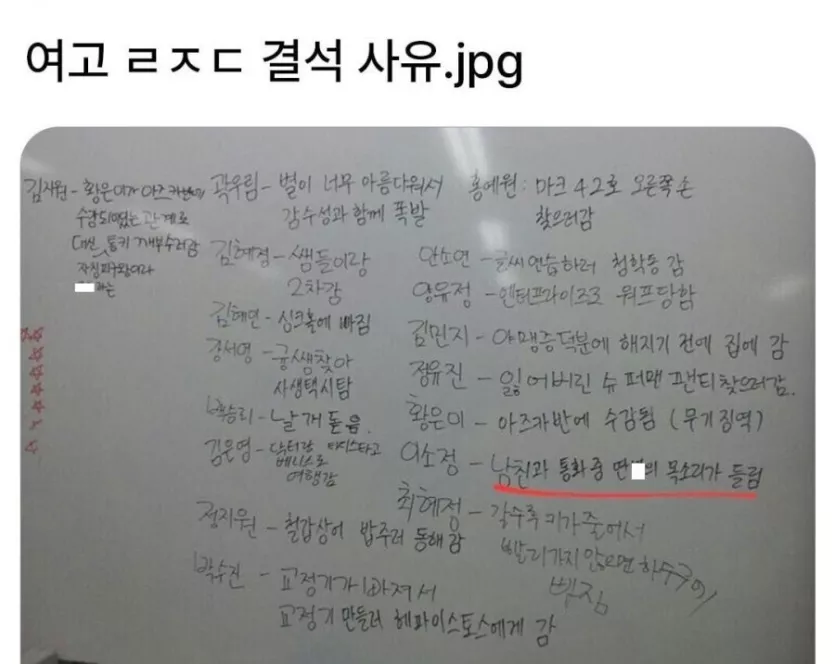 여고 ㄹㅈㄷ 결석 사유.jpg
김지원 - 황은이가 아즈카반에
수감되었는 관계로
대신 통키 깨부수러감
자칭피구왕이라
는
곽우림 - 별이 너무 아름다워서
감수성과 함께 폭발
김혜정 - 쌤들이랑
2차감
김혜연 - 싱크홀에 빠짐
강서영 - 궁쌤찾아
사생택시탐
승리 - 날개 돋음.
김은영 - 닥터랑 타디스타고
베니스로
여행감
정지원 - 철갑상어 밥주러 동해감
박수진 - 교정기가 빠져서
교정기 만들러 헤파이스토스에게 감
홍예원 : 마크 42호 오른쪽 손
찾으러감
안소연 - 글씨연습하러 청학동 감
양유정 - 엔터프라이즈로 워프당함
김민지 - 야맹증덕분에 해지기 전에 집에 감
정유진 - 잃어버린 슈퍼맨 팬티찾으러감.
황은이 - 아즈카반에 수감됨 (무기징역)
이소정 - 남친과 통화 중 의 목소리가 들림
최혜정 - 갈수록 키가줄어서
빨리가지 않으면 하수구에
빠짐